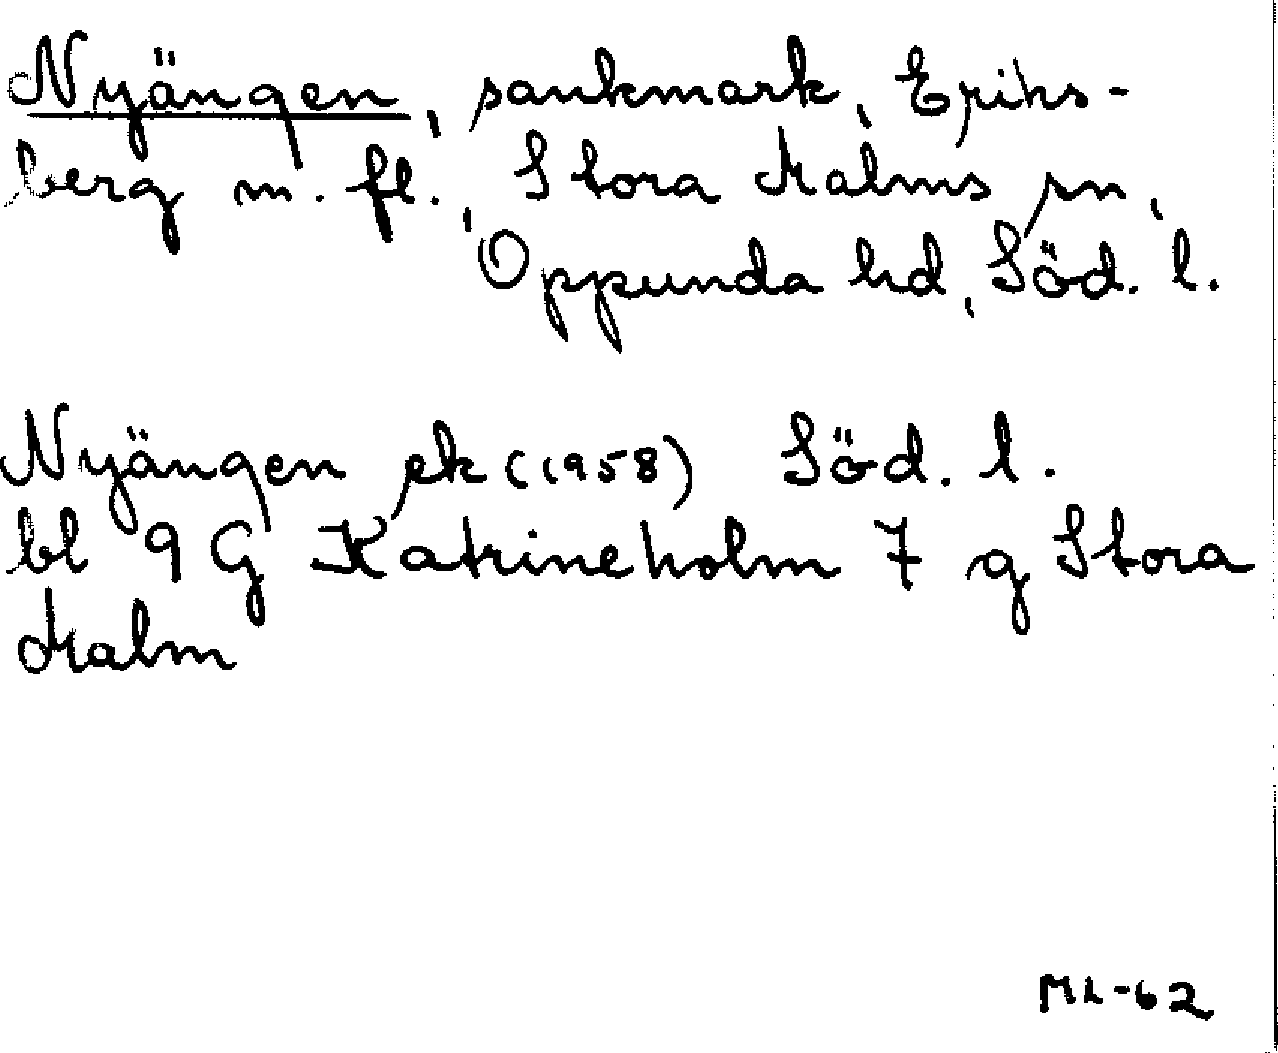 Nyängen, sankmark, Eriks-
berg m. fl., Stora Malms sn,
Oppunda hd, Söd. l.
Nyängen ek (1958) Söd. l.
bl 9 G Katrineholm 7 g Stora
Malm
ML-62